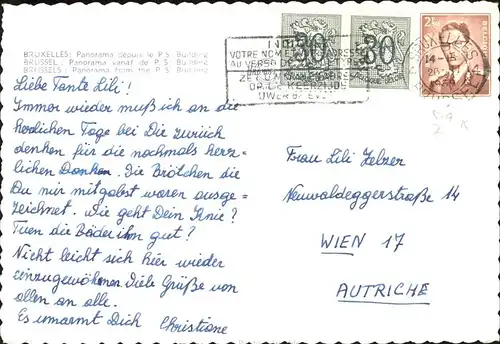 BRUXELLES: Panorama depuis le P.S. Building
BRUSSEL: Panorama vanaf de P.S. Building
BRUSSELS: Panorama from the P.S. Building
VOTRE NOM ET VOTRE ADRESSE
AU VERSO DE
OP DE KEERZIJDE
UWER
30
30
Liebe Tante Lili!
Immer wieder muß ich an die
herrlichen Tage bei Dir zurück
denken für die nochmals herz-
lichen Danken. Die Brötchen die
Du mir mitgabst waren ausge-
zeichnet. Wie geht Dein Knie?
Tuen die Bäder ihm gut?
Nicht leicht sich hier wieder
einzugewöhnen. Viele Grüße von
allen an alle.
Es umarmt Dich Christiane
Frau Lili
Neuwaldeggerstraße 14
WIEN 17
AUTRICHE